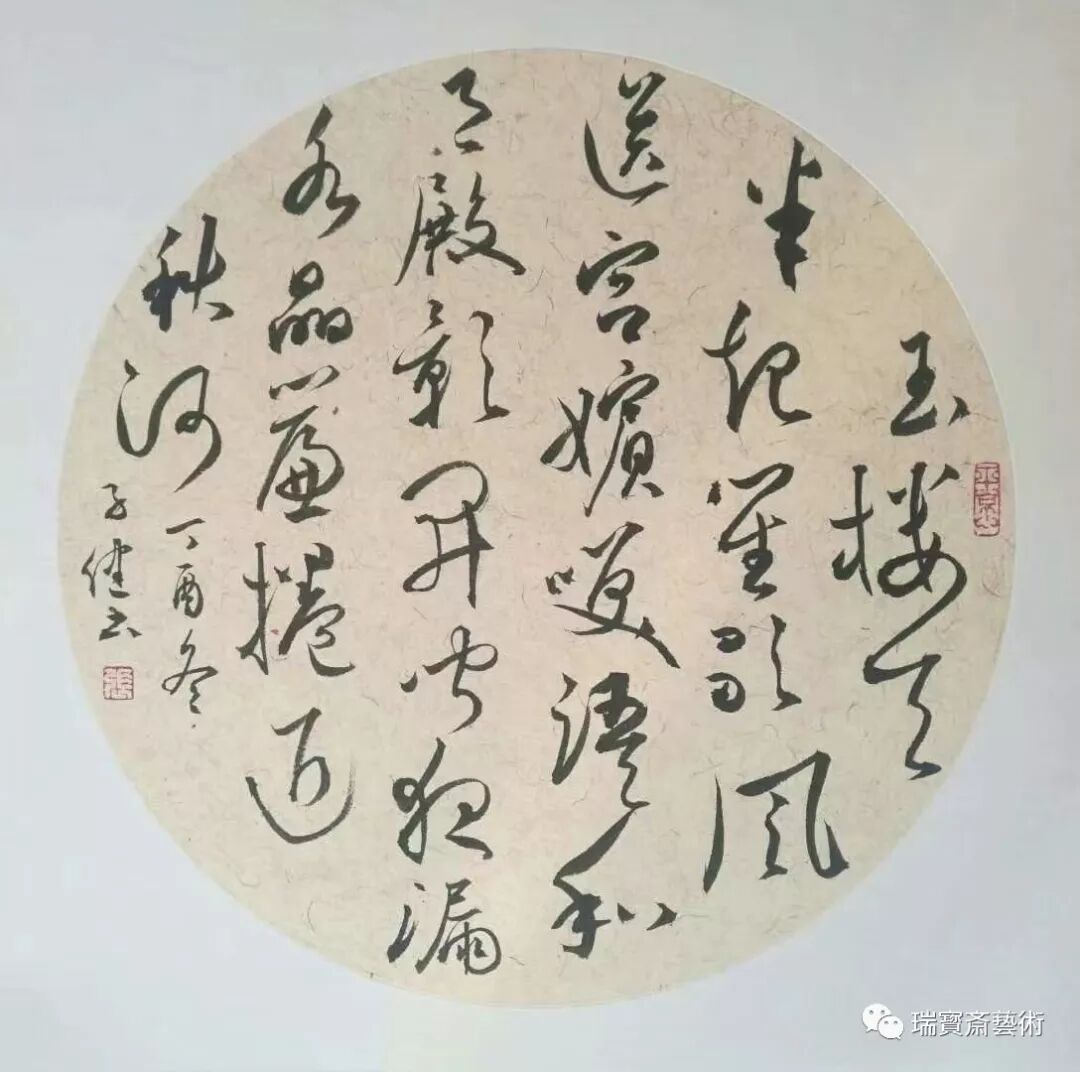 玉樓天
半起笙歌風
送宮嬪咲語和
月殿影開聞夜漏
水晶簾捲近
秋河 丁酉冬
子健书
瑞寶斋藝術